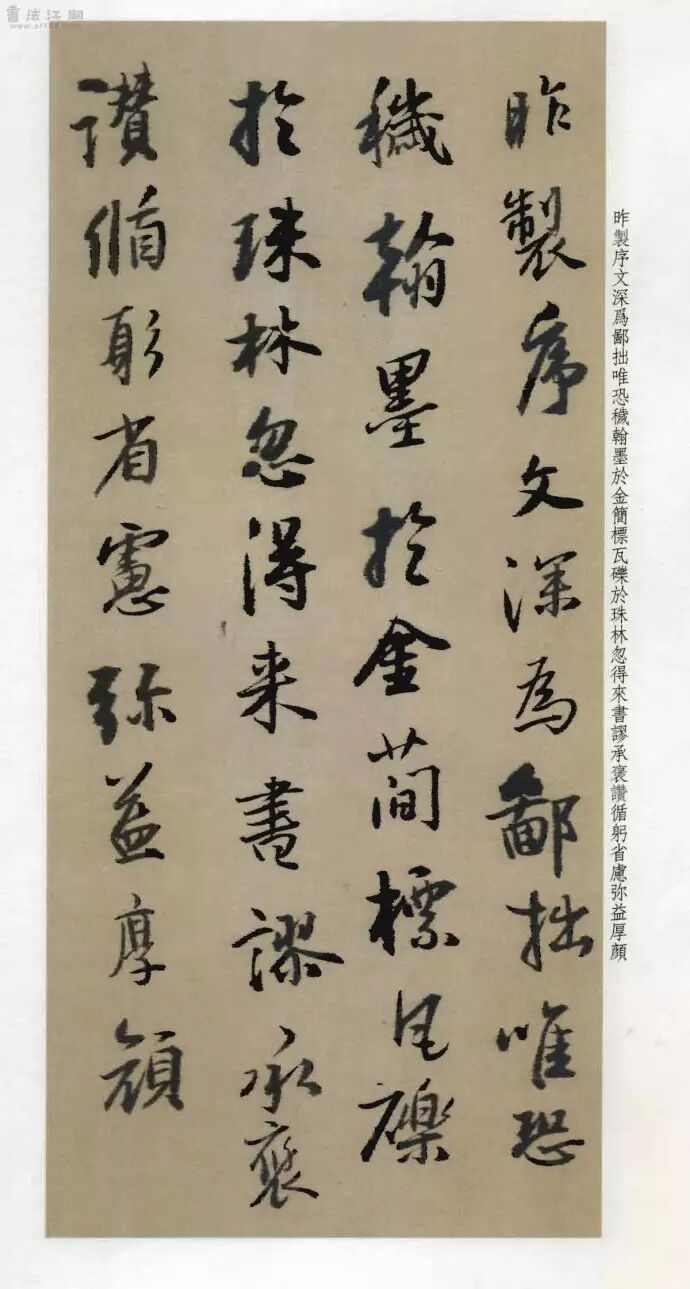 昨製序文深為鄙拙唯恐
穢翰墨於金簡標瓦礫
於珠林忽得来書謬承褒
讃循躬省慮弥益厚顔
昨製序文深爲鄙拙唯恐穢翰墨於金簡標瓦礫於珠林忽得來書謬承褒讚循躬省慮弥益厚顔
書法江湖